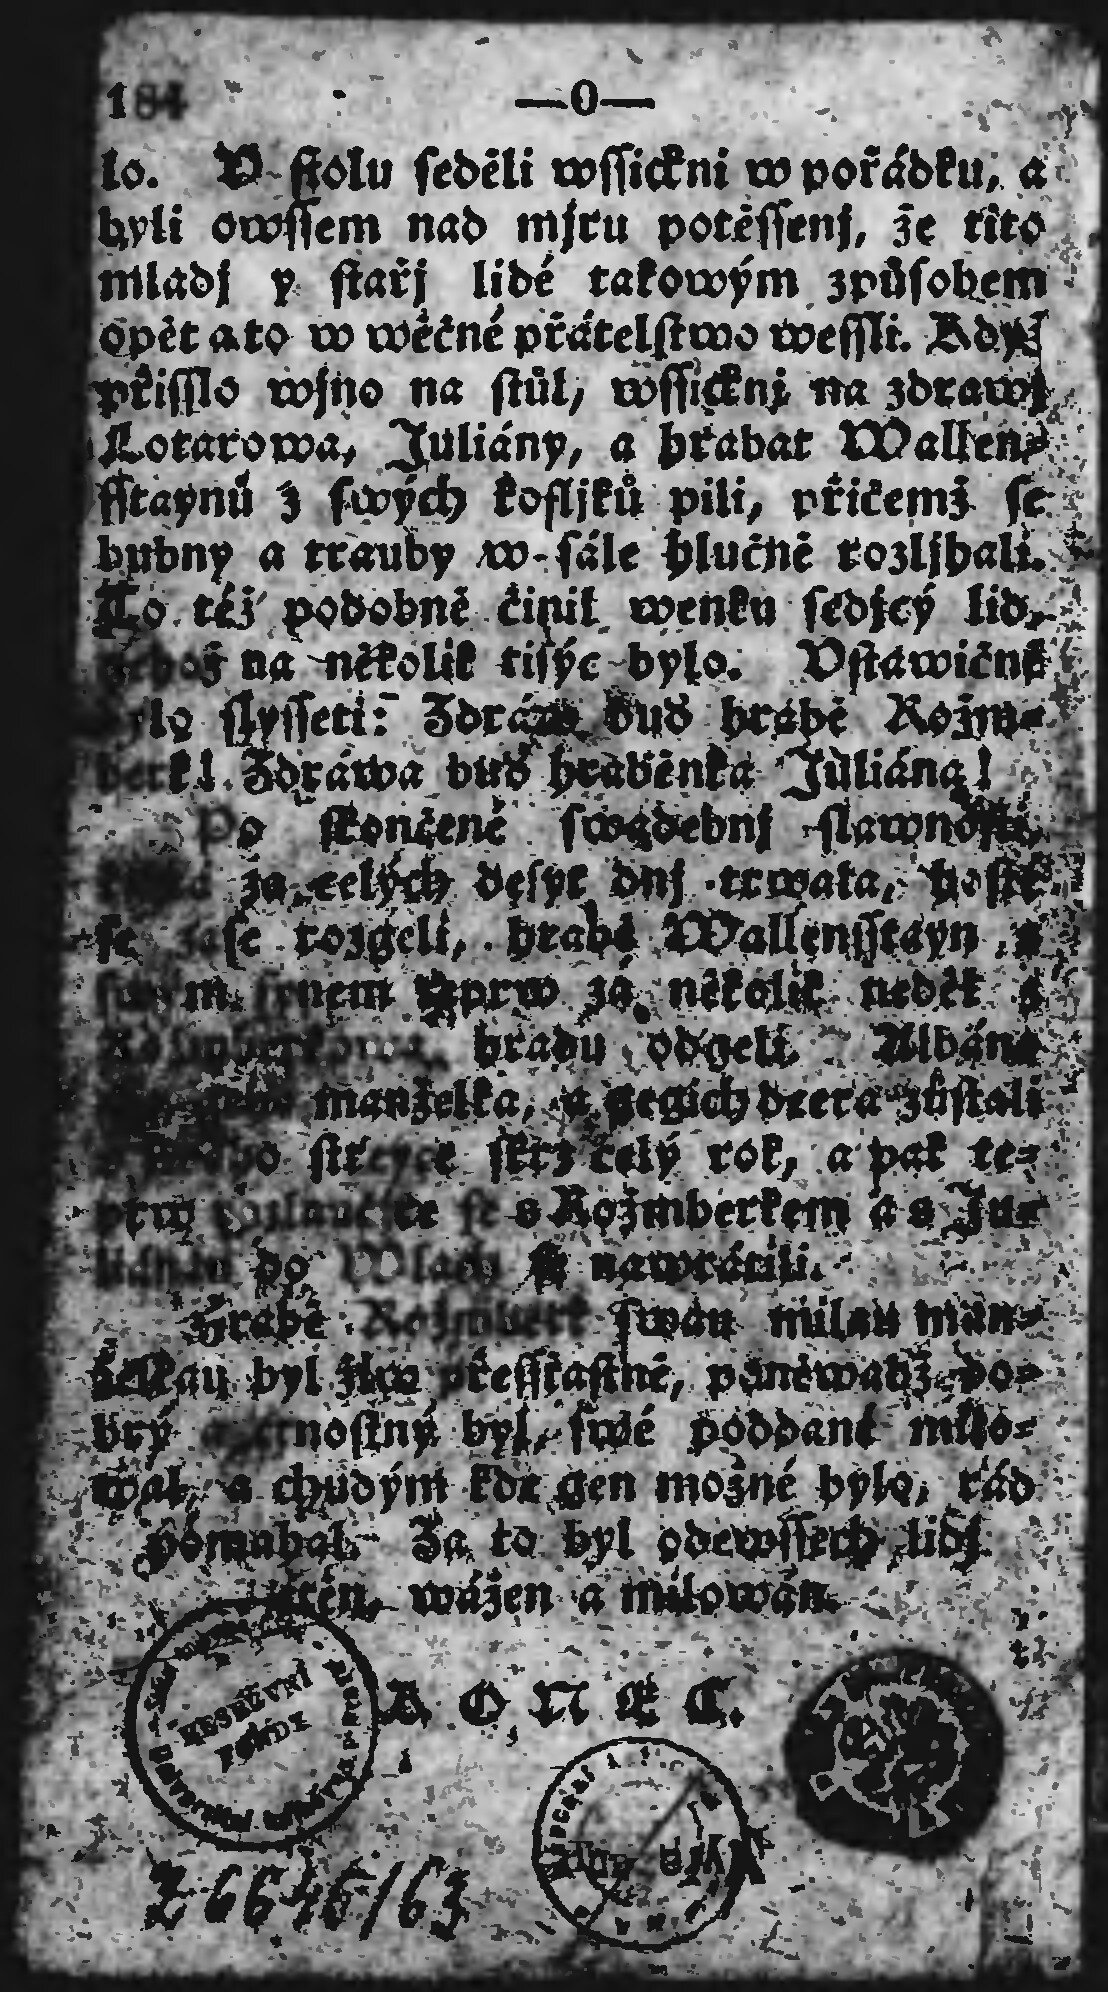 184 —0—
lo. V ſtolu ſeděli wſſickni w pořádku, a
byli owſſem nad mjru potěſſenj, že tito
mladj y ſtařj lidé takowým způſobem
opět a to w wěčné přátelſtwo weſſli. Když
přiſſlo wjno na ſtůl, wſſickni na zdrawj
Lotarowa, Juliány, a hrabat Wallen⸗
ſſtaynů z ſwých kofljků pili, přičemž ſe
bubny a trauby w ſále hlučně rozljhali.
To též podobně činil wenku ſedjcý lid,
na několik tiſýc bylo. Vſtawičně
ſlyſſeti: Zdráw buď hrabě Rožm⸗
berk! Zdráwa buď hraběnka Juliána!
Po ſkončené ſwadebnj ſlawnoſti,
za celých deſýt dnj trwala, hoſté
ſe zaſe rozgeli, hrabě Wallenſſtayn
ſynem teprw za několik neděl
hradu odgeli. Albána
manželka, a gegich dcera zůſtali
ſtreyce ſkrz celý rok, a pak te⸗
prw ſe s Rožmberkem a s Ju⸗
do Wlach ſe nawrátili.
Hrabě Rožmberk ſwau milau man⸗
želkau byl žiw přeſſťaſtně, poněwadž do⸗
brý a ctnoſtný byl, ſwé poddané milo⸗
wal, a chudým kde gen možné bylo, rád
pomahal. Za to byl odewſſech lidj
ctěn, wážen a milowán.
KONEC.
RESERVNÍ
FONDY
Z 6646/63